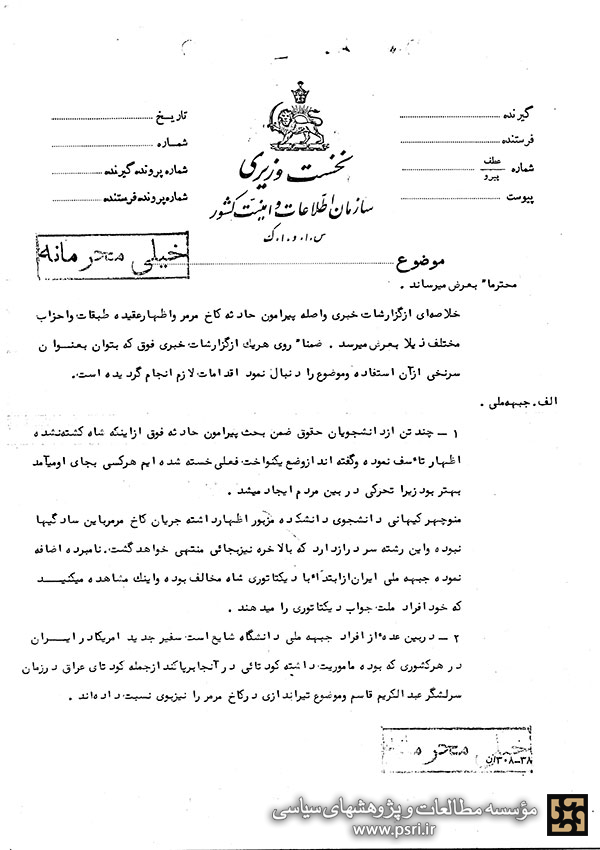 گیرنده
فرستنده
شماره عطف پیرو
پیوست
تاریخ
شماره
شماره پرونده گیرنده
شماره پرونده فرستنده
نخست وزیری
سازمان اطلاعات و امنیت کشور
س.ا.و.ا.ک
موضوع
خیلی محرمانه
محترما" بعرض میرساند .
خلاصه‌ای ازگزارشات خبری واصله پیرامون حادثه کاخ مرمر واظهارعقیده طبقات واحزاب
مختلف ذیلا بعرض میرسد . ضمنا" روی هریک ازگزارشات خبری فوق که بتوان بعنوان
سرنخی ازآن استفاده وموضوع را دنبال نمود اقدامات لازم انجام گردیده است.
الف. جبهه ملی .
۱ – چند تن ازدانشجویان حقوق ضمن بحث پیرامون حادثه فوق ازاینکه شاه کشته‌نشده
اظهار تاءسف نموده وگفته اند ازوضع یکنواخت فعلی خسته شده ایم هرکسی بجای اومیآمد
بهتر بود زیرا تحرکی در بین مردم ایجاد میشد .
منوچهر کیهانی دانشجوی دانشکده مزبور اظهارداشته جریان کاخ مرمرباین سادگیها
نبوده واین رشته سر درازدارد که بالاخره نیزبجائی منتهی خواهدگشت. نامبرده اضافه
نموده جبهه ملی ایران ازابتدا" با دیکتاتوری شاه مخالف بوده واینک مشاهده میکنید
که خود افراد ملت جواب دیکتاتوری را میدهند .
۲ – دربین عده‌ءازافراد جبهه ملی دانشگاه شایع است سفیر جدید امریکا در ایران
در هرکشوری که بوده ماموریت داشته کودتائی در آنجا برپاکند ازجمله کودتای عراق درزمان
سرلشگر عبدالکریم قاسم وموضوع تیراندازی درکاخ مرمر را نیزبوی نسبت داده‌اند .
خیلی محرمانه
۳۰۸-۳۸/ن
مؤسسه مطالعات و پژوهشهای سیاسی
www.psri.ir